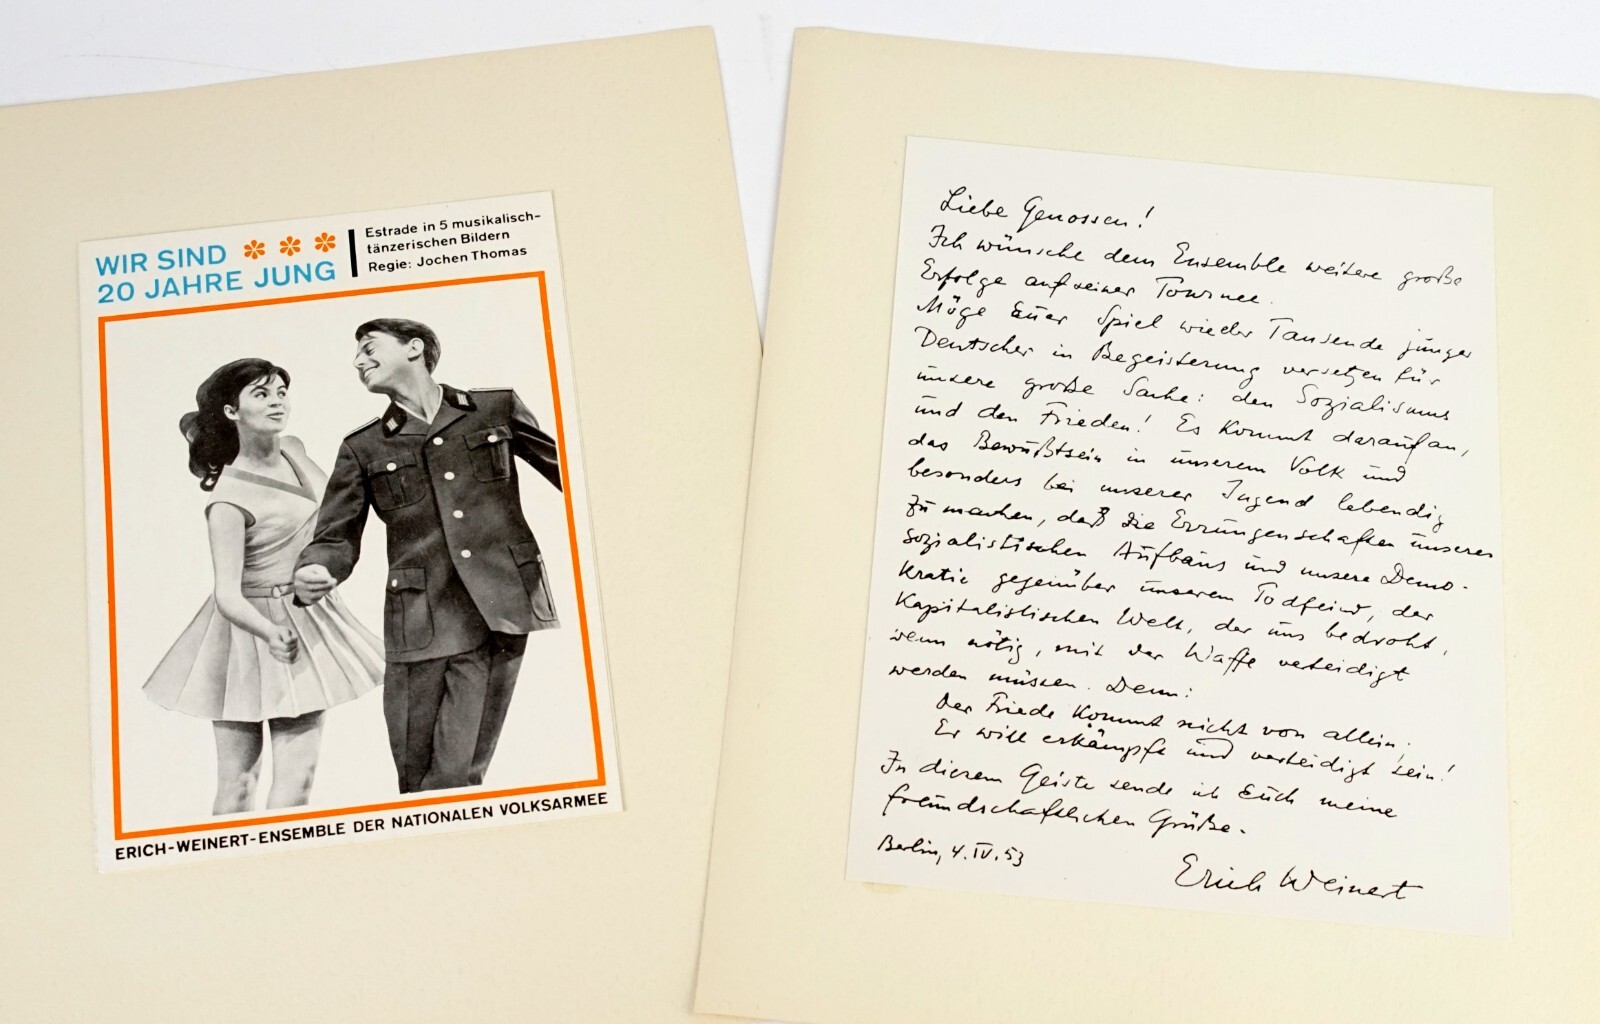 WIR SIND ***
20 JAHRE JUNG
Estrade in 5 musikalisch-
tänzerischen Bildern
Regie: Jochen Thomas
ERICH-WEINERT-ENSEMBLE DER NATIONALEN VOLKSARMEE
Liebe Genossen!
Ich wünsche dem Ensemble weitere große
Erfolge auf seiner Tournee.
Möge Euer Spiel wieder Tausende junger
Deutscher in Begeisterung versetzen für
unsere große Sache: den Sozialismus
und den Frieden! Es kommt darauf an,
das Bewußtsein in unserem Volk und
besonders bei unserer Jugend lebendig
zu machen, daß die Errungenschaften unseres
sozialistischen Aufbaus und unsere Demo-
kratie gegenüber unserem Todfeind, der
kapitalistischen Welt, der uns bedroht,
wenn nötig, mit der Waffe verteidigt
werden müssen. Denn:
Der Friede kommt nicht von allein;
Er will erkämpft und verteidigt sein!
In diesem Geiste sende ich Euch meine
freundschaftlichen Grüße.
Berlin, 4.IV.53
Erich Weinert